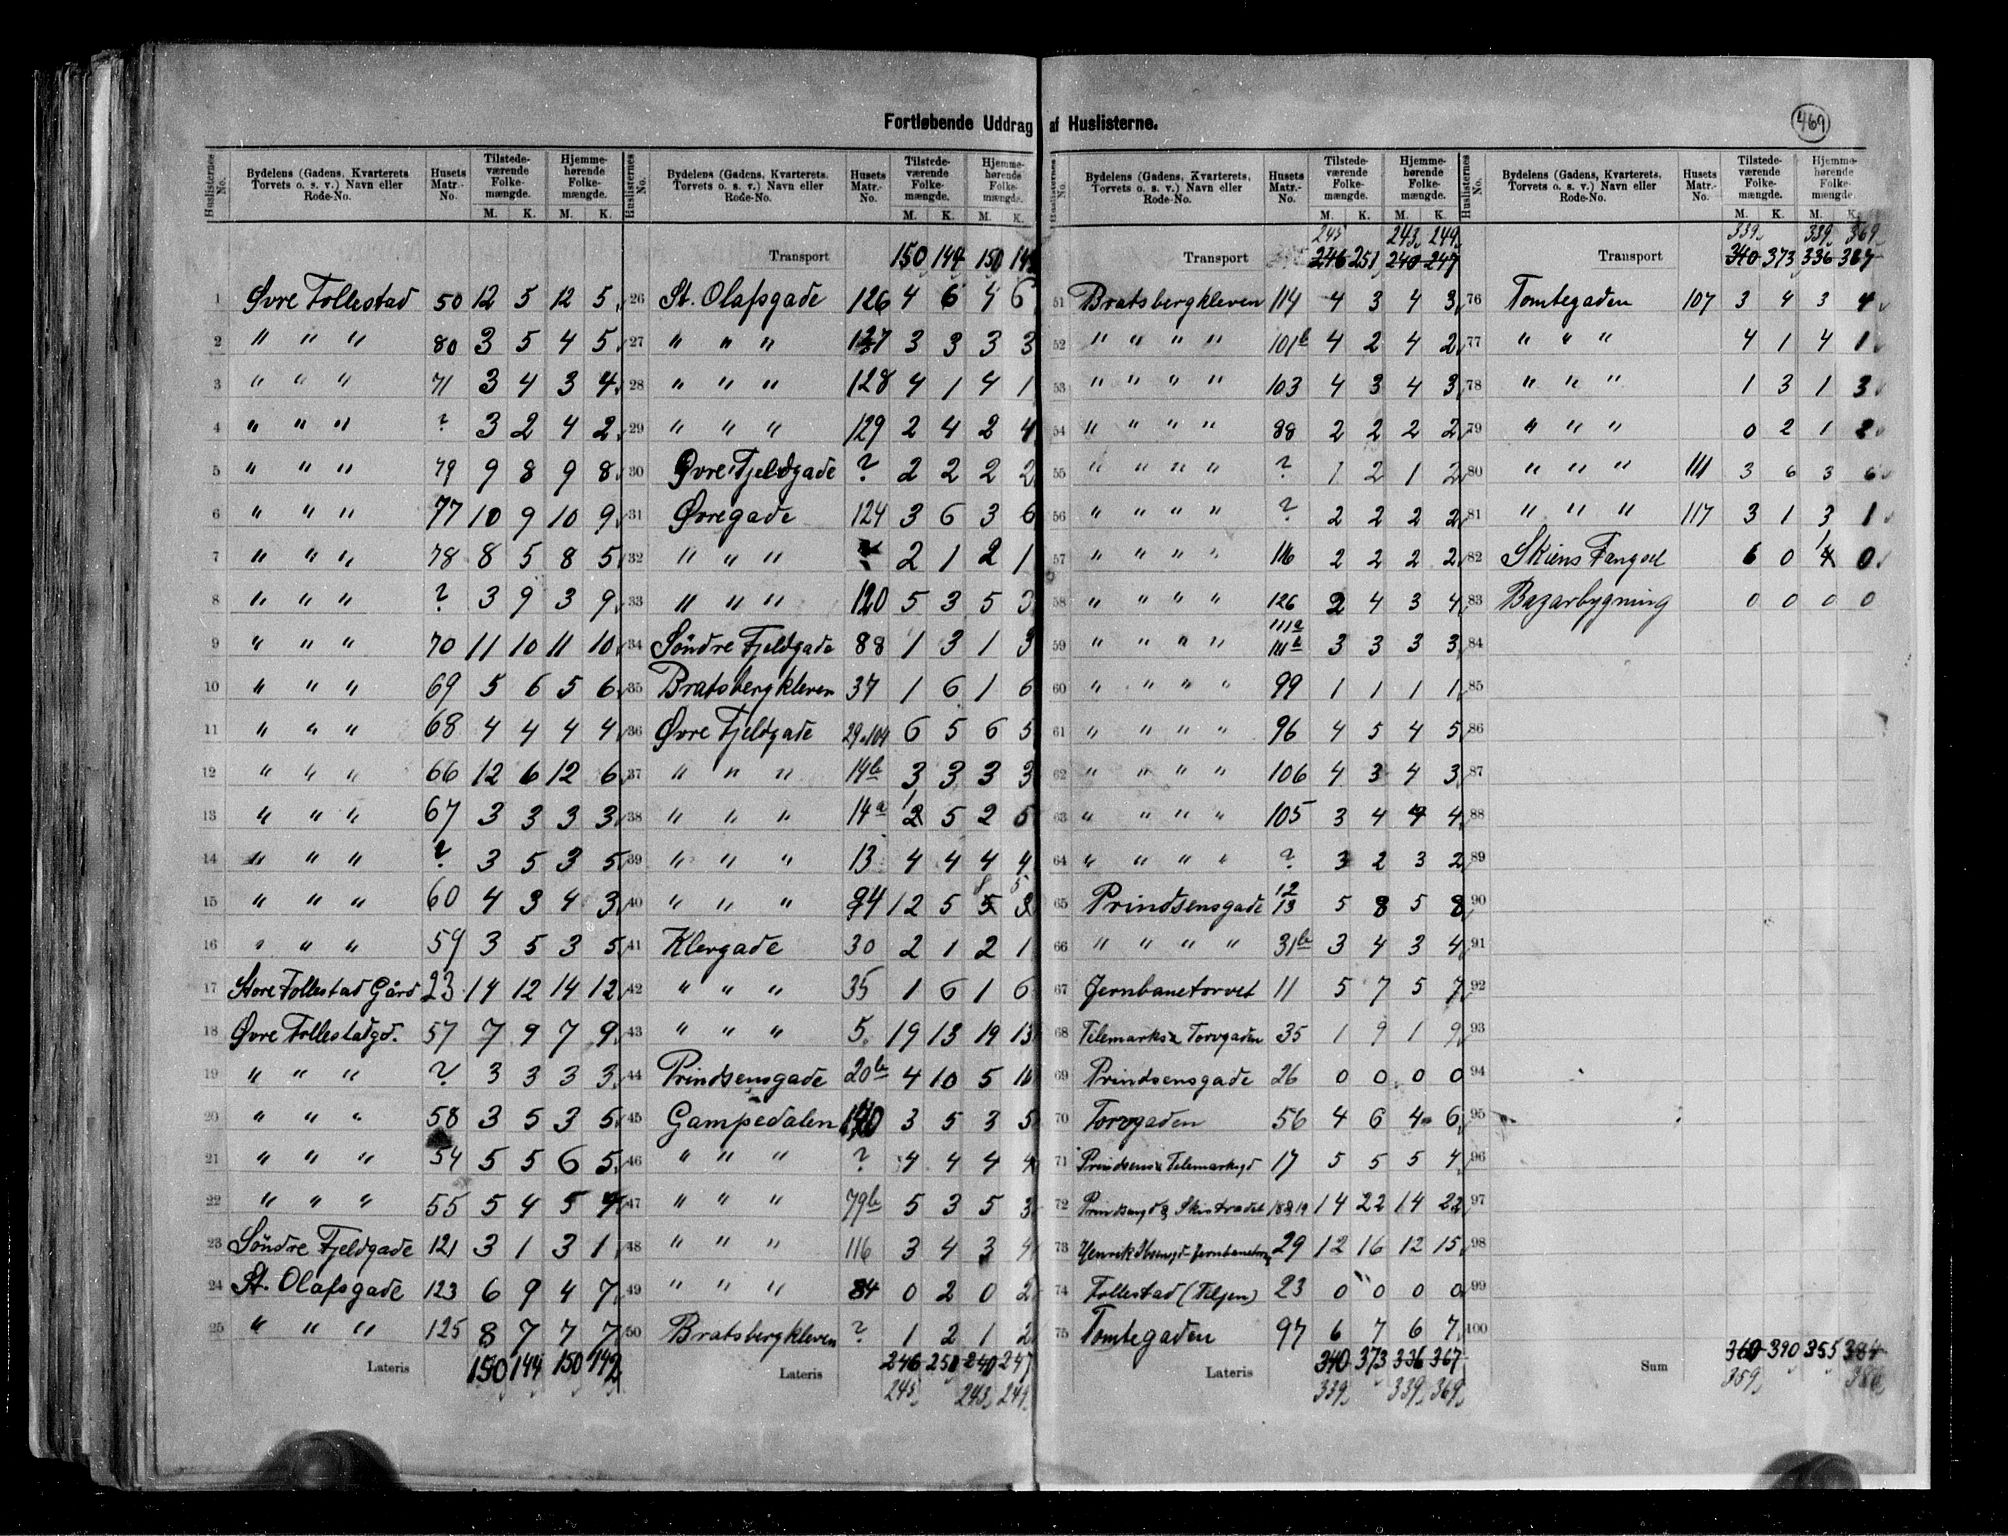 Fortløbende Uddrag af Huslisterne.
469
Huslisternes No. | Bydelens (Gadens, Kvarterets, Torvets o. s. v.) Navn eller Rode-No. | Husets Matr.-No. | Tilstedeværende Folkemængde. M. K. | Hjemmehørende Folkemængde. M. K.
1 Øvre Follestad 50 12 5 12 5
2 " " " 80 3 5 4 5
3 " " " 71 3 4 3 4
4 " " " ? 3 2 4 2
5 " " " 79 9 8 9 8
6 " " " 77 10 9 10 9
7 " " " 78 8 5 8 5
8 " " " ? 3 9 3 9
9 " " " 70 11 10 11 10
10 " " " 69 5 6 5 6
11 " " " 68 4 4 4 4
12 " " " 66 12 6 12 6
13 " " " 67 3 3 3 3
14 " " " ? 3 5 3 5
15 " " " 60 4 3 4 3
16 " " " 59 3 5 3 5
17 Store Follestad Gård 23 14 12 14 12
18 Øvre Follestadgd. 57 7 9 7 9
19 " " " ? 3 3 3 3
20 " " " 58 3 5 3 5
21 " " " 54 5 5 6 5
22 " " " 55 5 4 5 4
23 Söndre Fjeldgade 121 3 1 3 1
24 St. Olafsgade 123 6 9 4 7
25 " " " 125 8 7 7 7
Lateris 150 144 150 142
Huslisternes No. | Bydelens (Gadens, Kvarterets, Torvets o. s. v.) Navn eller Rode-No. | Husets Matr.-No. | Tilstedeværende Folkemængde. M. K. | Hjemmehørende Folkemængde. M. K.
Transport 150 144 150 142
26 St. Olafsgade 126 4 6 4 6
27 " " " 127 3 3 3 3
28 " " " 128 4 1 4 1
29 " " " 129 2 4 2 4
30 Øvre Fjeldgade ? 2 2 2 2
31 Øvregade 124 3 6 3 6
32 " " " 2 1 2 1
33 " " " 120 5 3 5 3
34 Söndre Fjeldgade 88 1 3 1 3
35 Bratsbergkleven 37 1 6 1 6
36 Øvre Fjeldgade 29 104 6 5 6 5
37 " " " 14b 3 3 3 3
38 " " " 14a 1 2 5 2 5
39 " " " 13 4 4 4 4
40 " " " 94 12 5 8 5 5 3
41 Klergade 30 2 1 2 1
42 " " " 35 1 6 1 6
43 " " " 5 19 13 19 13
44 Prindsensgade 20b 4 10 5 10
45 Gampedalen 140 3 5 3 5
46 " " " ? 4 4 4 4
47 " " " 79b 5 3 5 3
48 " " " 116 3 4 3 4
49 " " " 84 0 2 0 2
50 Bratsbergkleven ? 1 2 1 2
Lateris 246 251 240 247
245 243 249
Huslisternes No. | Bydelens (Gadens, Kvarterets, Torvets o. s. v.) Navn eller Rode-No. | Husets Matr.-No. | Tilstedeværende Folkemængde. M. K. | Hjemmehørende Folkemængde. M. K.
245 243 249
Transport 246 251 240 247
51 Bratsbergkleven 114 4 3 4 3
52 " " " " 101b 4 2 4 2
53 " " " " 103 4 3 4 3
54 " " " " 88 2 2 2 2
55 " " " " ? 1 2 1 2
56 " " " " ? 2 2 2 2
57 " " " " 116 2 2 2 2
58 " " " " 126 2 4 3 4
59 " " " " 111a 111b 3 3 3 3
60 " " " " 99 1 1 1 1
61 " " " " 96 4 5 4 5
62 " " " " 106 4 3 4 3
63 " " " " 105 3 4 4 4
64 " " " " ? 3 2 3 2
65 Prindsensgade 12 13 5 8 5 8
66 " " " " 31b 3 4 3 4
67 Jernbanetorvet 11 5 7 5 7
68 Telemarks & Torvgaden 35 1 9 1 9
69 Prindsensgade 26 0 0 0 0
70 Torvgaden 56 4 6 4 6
71 Prindsens & Telemarkgd 17 5 5 5 4
72 Prindsengd & Skistrædet 18 & 19 14 22 14 22
73 Henrik Ibsengd. Jernbanetorv 29 12 16 12 15
74 Follestad (Filjen) 23 0 0 0 0
75 Tomtegaden 97 6 7 6 7
Lateris 340 373 336 367
339 339 369
Huslisternes No. | Bydelens (Gadens, Kvarterets, Torvets o. s. v.) Navn eller Rode-No. | Husets Matr.-No. | Tilstedeværende Folkemængde. M. K. | Hjemmehørende Folkemængde. M. K.
339 339 369
Transport 340 373 336 367
76 Tomtegaden 107 3 4 3 4
77 " " " 4 1 4 1
78 " " " 1 3 1 3
79 " " " 0 2 1 2
80 " " " 111 3 6 3 6
81 " " " 117 3 1 3 1
82 Skiens Fængsel 6 0 1 4 0
83 Bazarbygning 0 0 0 0
84
85
86
87
88
89
90
91
92
93
94
95
96
97
98
99
100
Sum 360 390 355 384
359 386